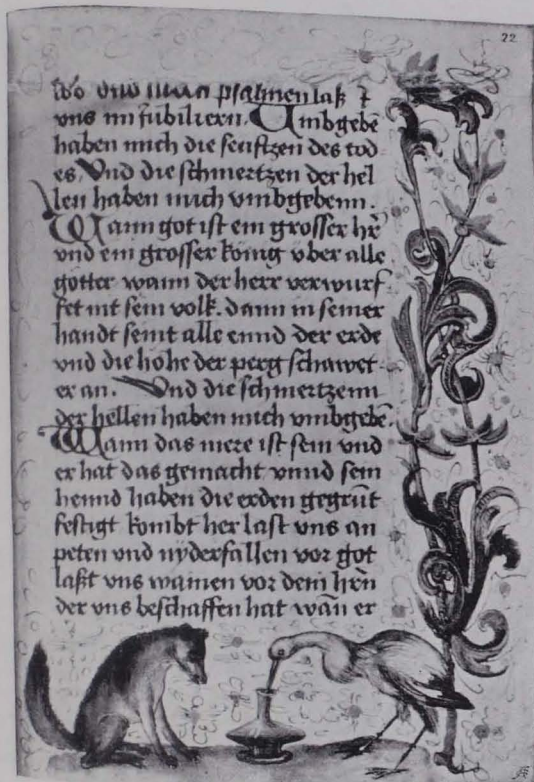 22
psalmen laß
vns im iubiliern. Vmbgebē
haben mich die seuftzen des tod
es. Vnd die schmertzen der hel
len haben mich vmbgebenn.
Wann got ist ein grosser hr̄
vnd ein grosser konig vber alle
gotter wann der herr verwurf
fet nit sein volk. dann in seiner
handt seint alle ennd der erde
vnd die hohe der perg schawet
er an. Vnd die schmertzenn
der hellen haben mich vmbgebē.
Wann das mere ist sein vnd
er hat das gemacht vnnd sein
hennd haben die erden gegrūt
festigt kombt her last vns an
peten vnd nyderfallen vor got
laßt vns wainen vor dem hrn̄
der vns beschaffen hat wan̄ er